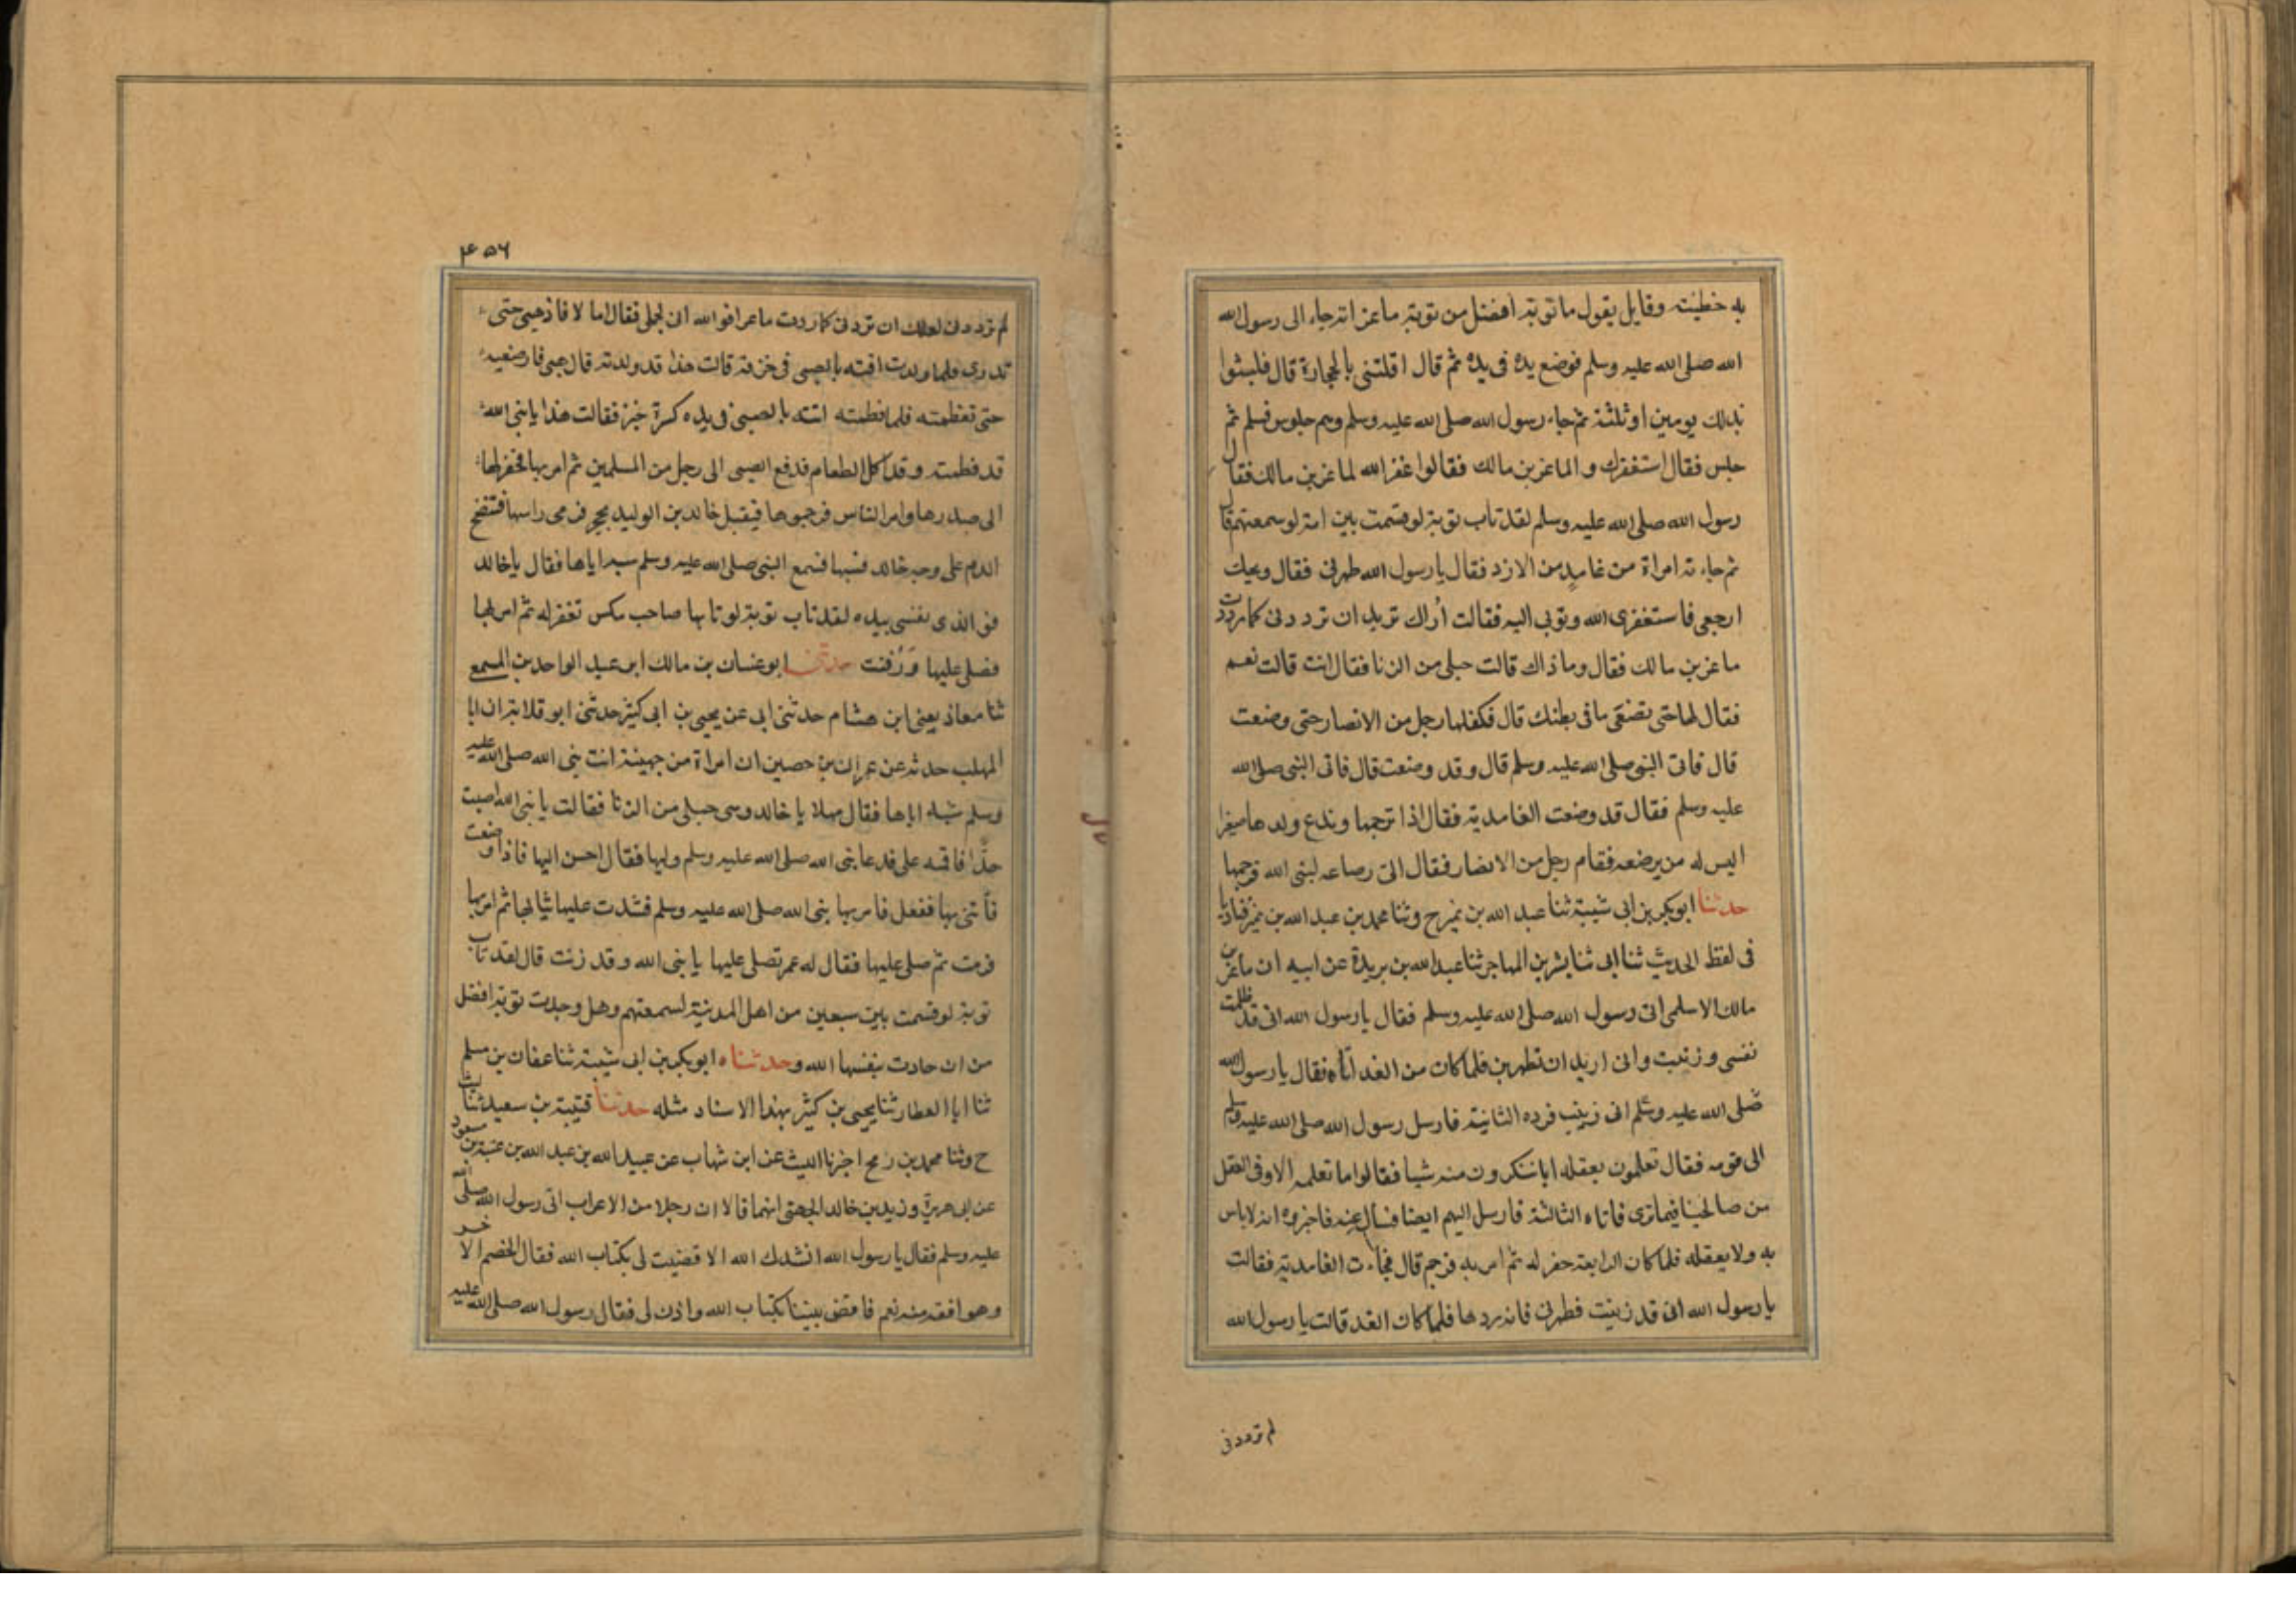 به خطيئته وقايل يقول ما توبة افضل من توبة ماعز انه جاء الى رسول الله
الله صلى الله عليه وسلم فوضع يده فى يده ثم قال اقتلنى بالحجارة قال فلبثوا
بذلك يومين او ثلثة ثم جاء رسول الله صلى الله عليه وسلم وهم جلوس فسلم ثم
جلس فقال استغفرك و الماعز بن مالك فقالوا غفر الله لماعز بن مالك فقال
رسول الله صلى الله عليه وسلم لقد تاب توبة لو قسمت بين امة لو سعتهم قا
ثم جاءته امراة من غامد من الازد فقال يا رسول الله طهرنى فقال ويحك
ارجعى فاستغفرى الله وتوبى اليه فقالت أراك تريد ان ترددنى كما رددت
ماعز بن مالك فقال وما ذاك قالت حبلى من الزنا فقال انت قالت نعم
فقال لها حتى تضعى ما فى بطنك قال فكفلها رجل من الانصار حتى وضعت
قال فاتى النبى صلى الله عليه وسلم قال و قد وضعت قال فاتى النبى صلى الله
عليه وسلم فقال قد وضعت الغامدية فقال اذا نرجمها وندع ولدها صغيرا
اليس له من يرضعه فقام رجل من الانصار فقال الى رضاعه لنبى الله فرجمها
حدثنا ابوبكر بن ابى شيبة ثنا عبد الله بن نمير ح وثنا محمد بن عبد الله بن نمير
فى لفظ الحديث ثنا ابى ثنا بشر بن المهاجر ثنا عبد الله بن بريدة عن ابيه ان ماعز بن
مالك الاسلمى اتى رسول الله صلى الله عليه وسلم فقال يا رسول الله انى قد ظلمت
نفسى و زنيت وانى اريد ان تطهرين فلما كان من الغد اتاه فقال يا رسول الله
صلى الله عليه وسلم انى زنيت فرده الثانية فارسل رسول الله صلى الله عليه وسلم
الى قومه فقال تعلمون بعقله اباس تنكرون منه شيا فقالوا ما تعلمه الا وفى العقل
من صالحينا فيما ترى فاتاه الثالثة فارسل اليهم ايضا فسال عنه فاخبروه انه لا باس
به ولا بعقله فلما كان الرابعة حفر له ثم امر به فرجم قال فجاءت الغامدية فقالت
يا رسول الله انى قد زنيت فطهرنى فانه ردها فلما كان الغد قالت يا رسول الله
لم ترددنى
۴۵۶
لم ترددنى لعلك ان ترددنى كما رددت ماعرا فوالله انى لحبلى فقال اما لا فاذهبى حتى
تلدى فلما ولدت اتته بالصبى فى خرقة قالت هذا قد ولدته قال اذهبى فارضعيه
حتى تفطمته فلما فطمته اتته بالصبى فى يده كسرة خبز فقالت هذا يا نبى الله
قد فطمته و قد اكل الطعام فدفع الصبى الى رجل من المسلمين ثم امر بها فحفر لها
الى صدرها وامر الناس فرجموها فيقبل خالد بن الوليد بحجر فرمى راسها فتنضح
الدم على وجه خالد فسبها فسمع النبى صلى الله عليه وسلم سبه اياها فقال يا خالد
فو الذى نفسى بيده لقد تاب توبة لو تابها صاحب مكس تغفر له ثم امر بها
فصلى عليها وَدُفنت حدثنى ابو غسان بن مالك ابن عبد الواحد بن المسمع
ثنا معاذ يعنى ابن هشام حدثنى ابى عن يحيى بن ابى كثير حدثنى ابو قلابة ان ابا
المهلب حدثه عن عمران بن حصين ان امراة من جهينة اتت نبى الله صلى الله عليه
وسلم اياها فقال مهلا يا خالد وهى حبلى من الزنا فقالت يا نبى الله اصبت
حدًّا فاقمه على فدعا نبى الله صلى الله عليه وسلم وليها فقال احسن اليها فاذا وضعت
فأتنى بها ففعل فامر بها نبى الله صلى الله عليه وسلم فشدت عليها ثيابها ثم امر بها
فرمت ثم صلى عليها فقال له عمر تصلى عليها يا نبى الله و قد زنت قال لقد تاب
توبة لو قسمت بين سبعين من اهل المدينة لسمعتهم وهل وجدت توبة افضل
من ان جادت بنفسها الله وحدثناه ابوبكر بن ابى شيبة ثنا عفان بن مسلم
ثنا ابا العطار ثنا يحيى بن كثير بهذا الاسناد مثله حدثنا قتيبة بن سعيد ثنا ليث
ح وثنا محمد بن رمح اخبرنا الليث عن ابن شهاب عن عبيد الله بن عبد الله بن عتبة بن مسعود
عن ابى هريرة و زيد بن خالد الجهنى انهما قالا ان رجلا من الاعراب اتى رسول الله صلى الله
عليه وسلم فقال يا رسول الله انشدك الله الا قضيت لى بكتاب الله فقال الخصم الاخر
وهو افقه منه نعم فاقض بيننا بكتاب الله واذن لى فقال رسول الله صلى الله عليه